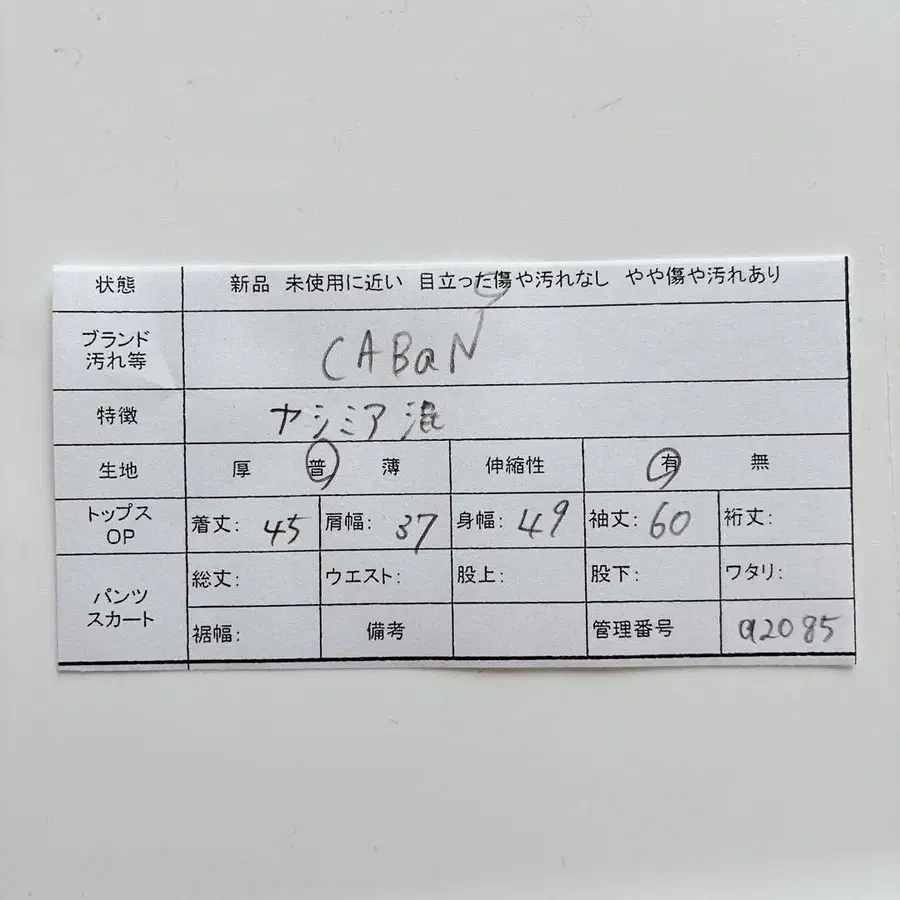 状態 新品 未使用に近い 目立った傷や汚れなし やや傷や汚れあり
ブランド
汚れ等 CABaN
特徴 カシミア混
生地 厚 普 薄 伸縮性 有 無
トップス
OP 着丈: 45 肩幅: 37 身幅: 49 袖丈: 60 裄丈:
パンツ
スカート 総丈: ウエスト: 股上: 股下: ワタリ:
裾幅: 備考 管理番号 a2085